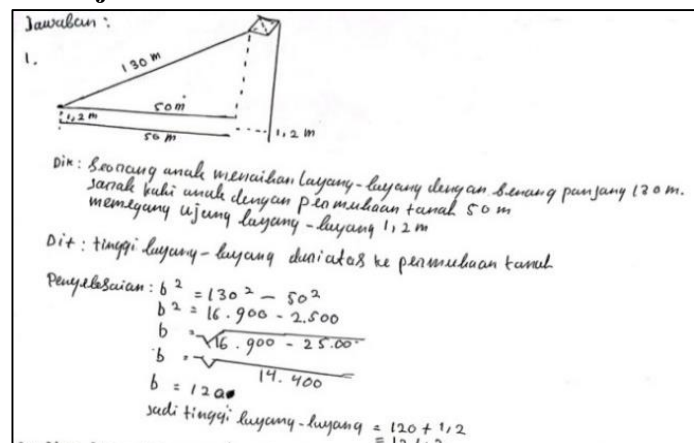 Jawaban :
1.
130 m
50 m
1,2 m
50 m
1,2 m
Dik : Seorang anak menaikan layang-layang dengan benang panjang 130 m.
Jarak kaki anak dengan permukaan tanah 50 m
memegang ujung layang-layang 1,2 m
Dit : tinggi layang-layang dari atas ke permukaan tanah
Penyelesaian : b² = 130² - 50²
b² = 16.900 - 2.500
b = √16.900 - 25.00
b = √14.400
b = 120
Jadi tinggi layang-layang = 120 + 1,2
= 121,2